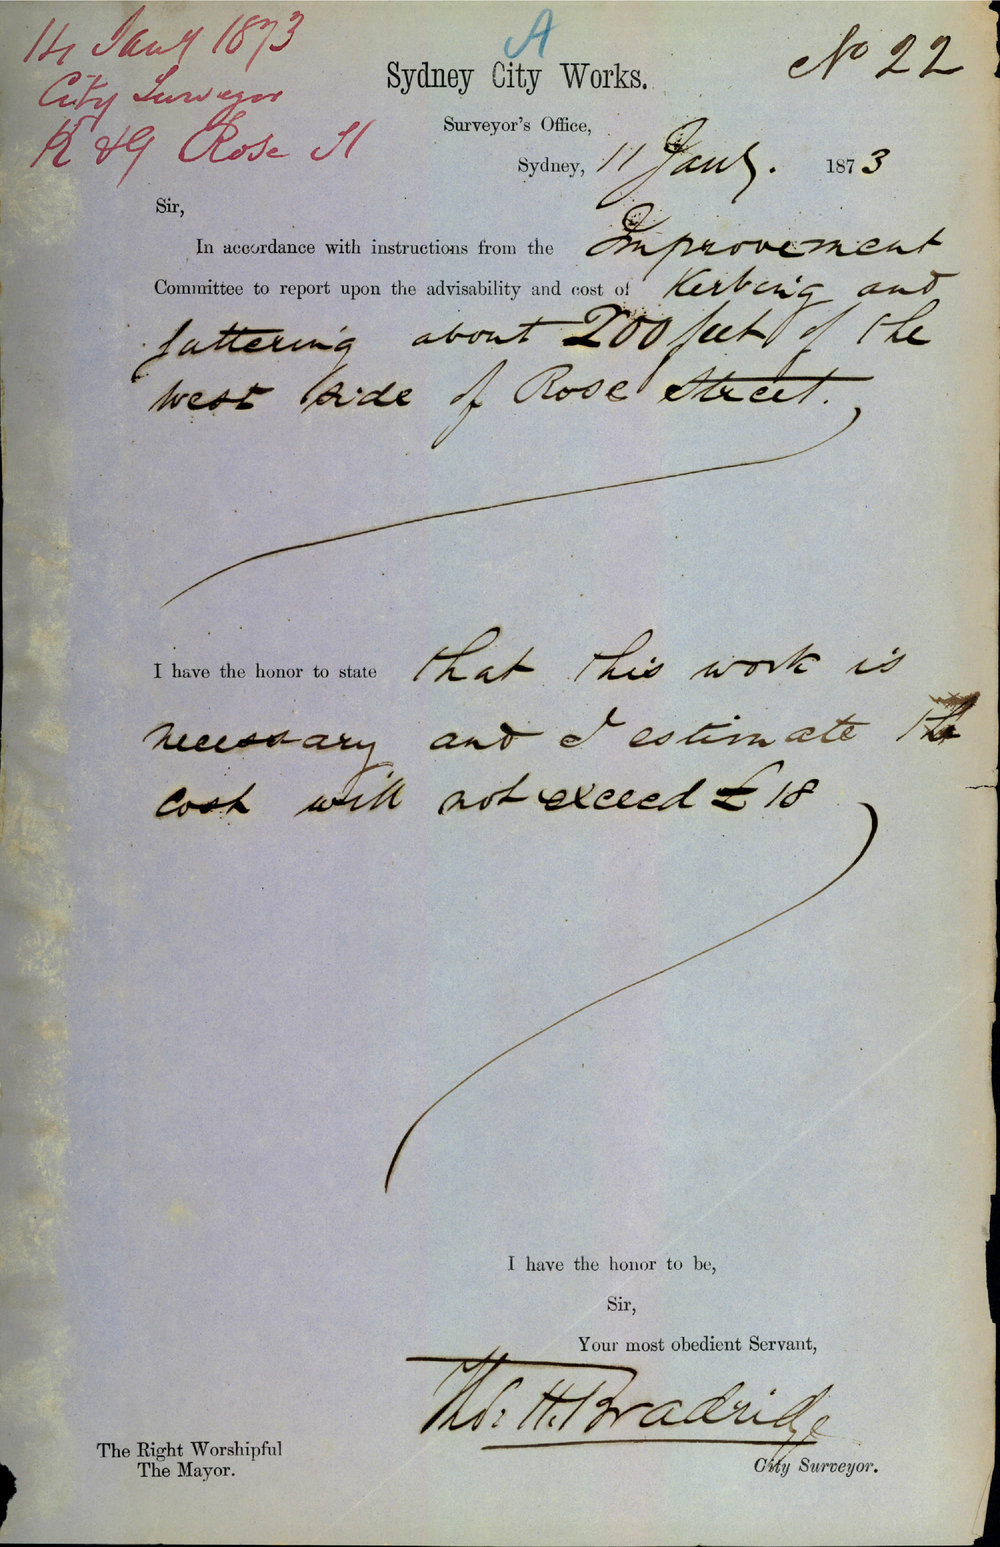 14 Jany 1873
City Surveyor
K & G Rose St
A
No 22
Sydney City Works.
Surveyor's Office,
Sydney, 11 Jany. 1873
Sir,
In accordance with instructions from the Improvement
Committee to report upon the advisability and cost of Kerbing and
guttering about 200 feet of the
west side of Rose Street.
I have the honor to state that this work is
necessary and I estimate the
cost will not exceed £18
I have the honor to be,
Sir,
Your most obedient Servant,
Thos. H. Bradridge
City Surveyor.
The Right Worshipful
The Mayor.